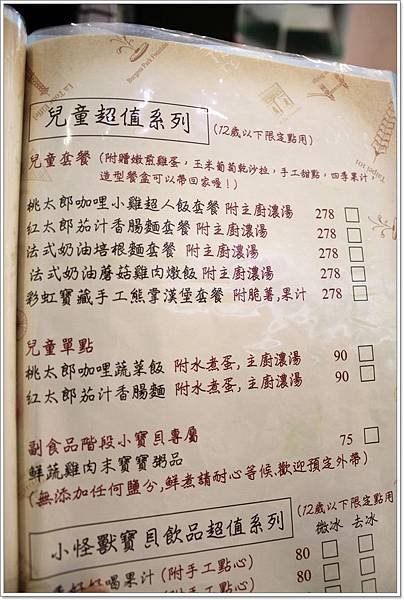 兒童超值系列 (12歲以下限定點用)
兒童套餐 (附贈嫩煎雞蛋,玉米葡萄乾沙拉,手工甜點,四季果汁,
造型餐盒可以帶回家喔!)
桃太郎咖哩小雞超人飯套餐 附主廚濃湯 278
紅太郎茄汁香腸麵套餐 附主廚濃湯 278
法式奶油培根麵套餐 附主廚濃湯 278
法式奶油蘑菇雞肉燉飯 附主廚濃湯 278
彩虹寶藏手工熊掌漢堡套餐 附脆薯,果汁 278
兒童單點
桃太郎咖哩蔬菜飯 附水煮蛋,主廚濃湯 90
紅太郎茄汁香腸麵 附水煮蛋,主廚濃湯 90
副食品階段小寶貝專屬 75
鮮蔬雞肉末寶寶粥品
(無添加任何鹽分,鮮煮請耐心等候.歡迎預定外帶)
小怪獸寶貝飲品超值系列 (12歲以下限定點用
微冰 去冰
喝果汁 (附手工點心) 80
(附手工點心) 80